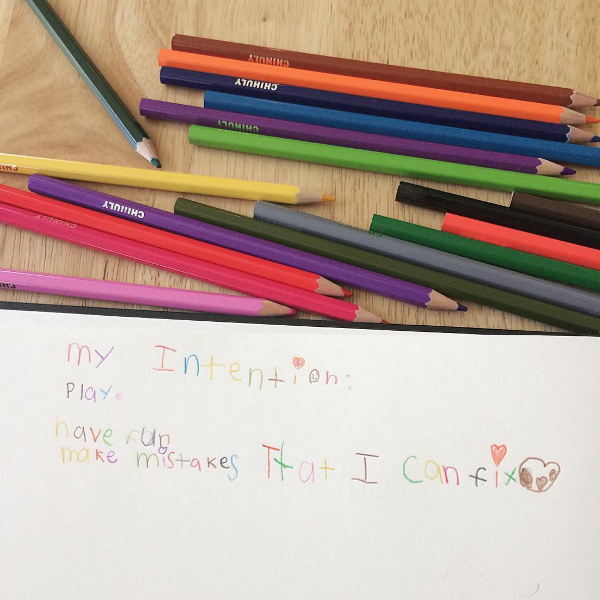 CHIHULY
CHIHULY
CHIHULY
CHIHULY
my Intention:
Play.
have fun
make mistakes That I can fix